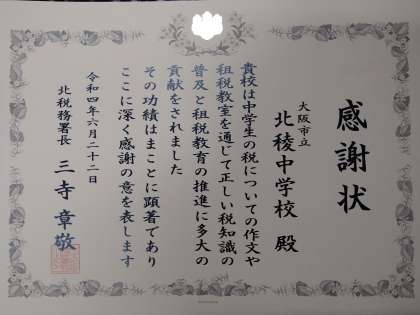 感謝状
大阪市立
北稜中学校 殿
貴校は中学生の税についての作文や
租税教室を通じて正しい税知識の
普及と租税教育の推進に多大の
貢献をされました
その功績はまことに顕著であり
ここに深く感謝の意を表します
令和四年六月二十二日
北税務署長 三寺章敬